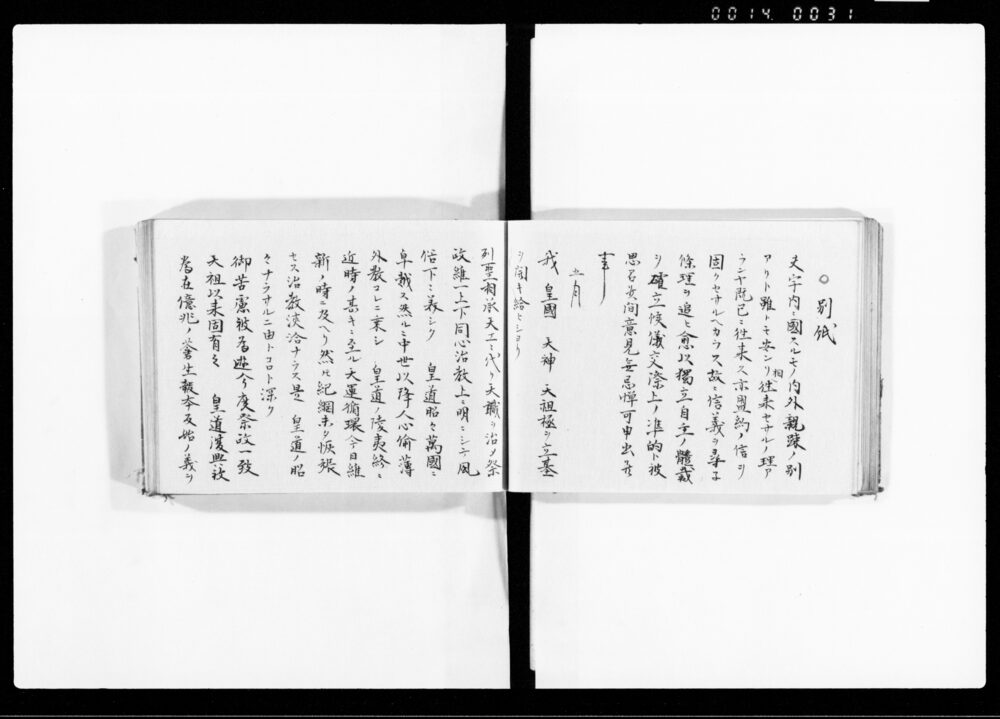 0014. 0031
○別紙
夫宇內ニ國スルモノ內外親疎ノ別
アリト雖トモ安ンソ相往来セサルノ理ア
ランヤ既已ニ往来ス亦盟約ノ信ヲ
固クセサルヘカラス故ニ信義ヲ尋子
條理ヲ追ヒ愈以獨立自主ノ體裁
ヲ確立候儀交際上ノ準的ト被
思召候間意見無忌憚可申出候
事
五月
我 皇國 天神 天祖極ヲ立基
ヲ開キ給ヒシヨリ
列聖相承天工ニ代リ天職ヲ治メ祭
政維一上下同心治教上ニ明ニシテ風
俗下ニ美シク 皇道昭々萬國ニ
卓越ス然ルニ中世以降人心偷薄
外教コレニ乗シ 皇道ノ陵夷終ニ
近時ノ甚キニ至ル天運循環今日維
新ノ時ニ及ヘリ然ヒ紀綱未タ恢張
セス治教浹洽ナラス是 皇道ノ昭
々ナラサルニ由トコロト深ク
御苦慮被為遊今度祭政一致
天祖以来固有之 皇道復興被
為在億兆ノ蒼生報本反始ノ義ヲ